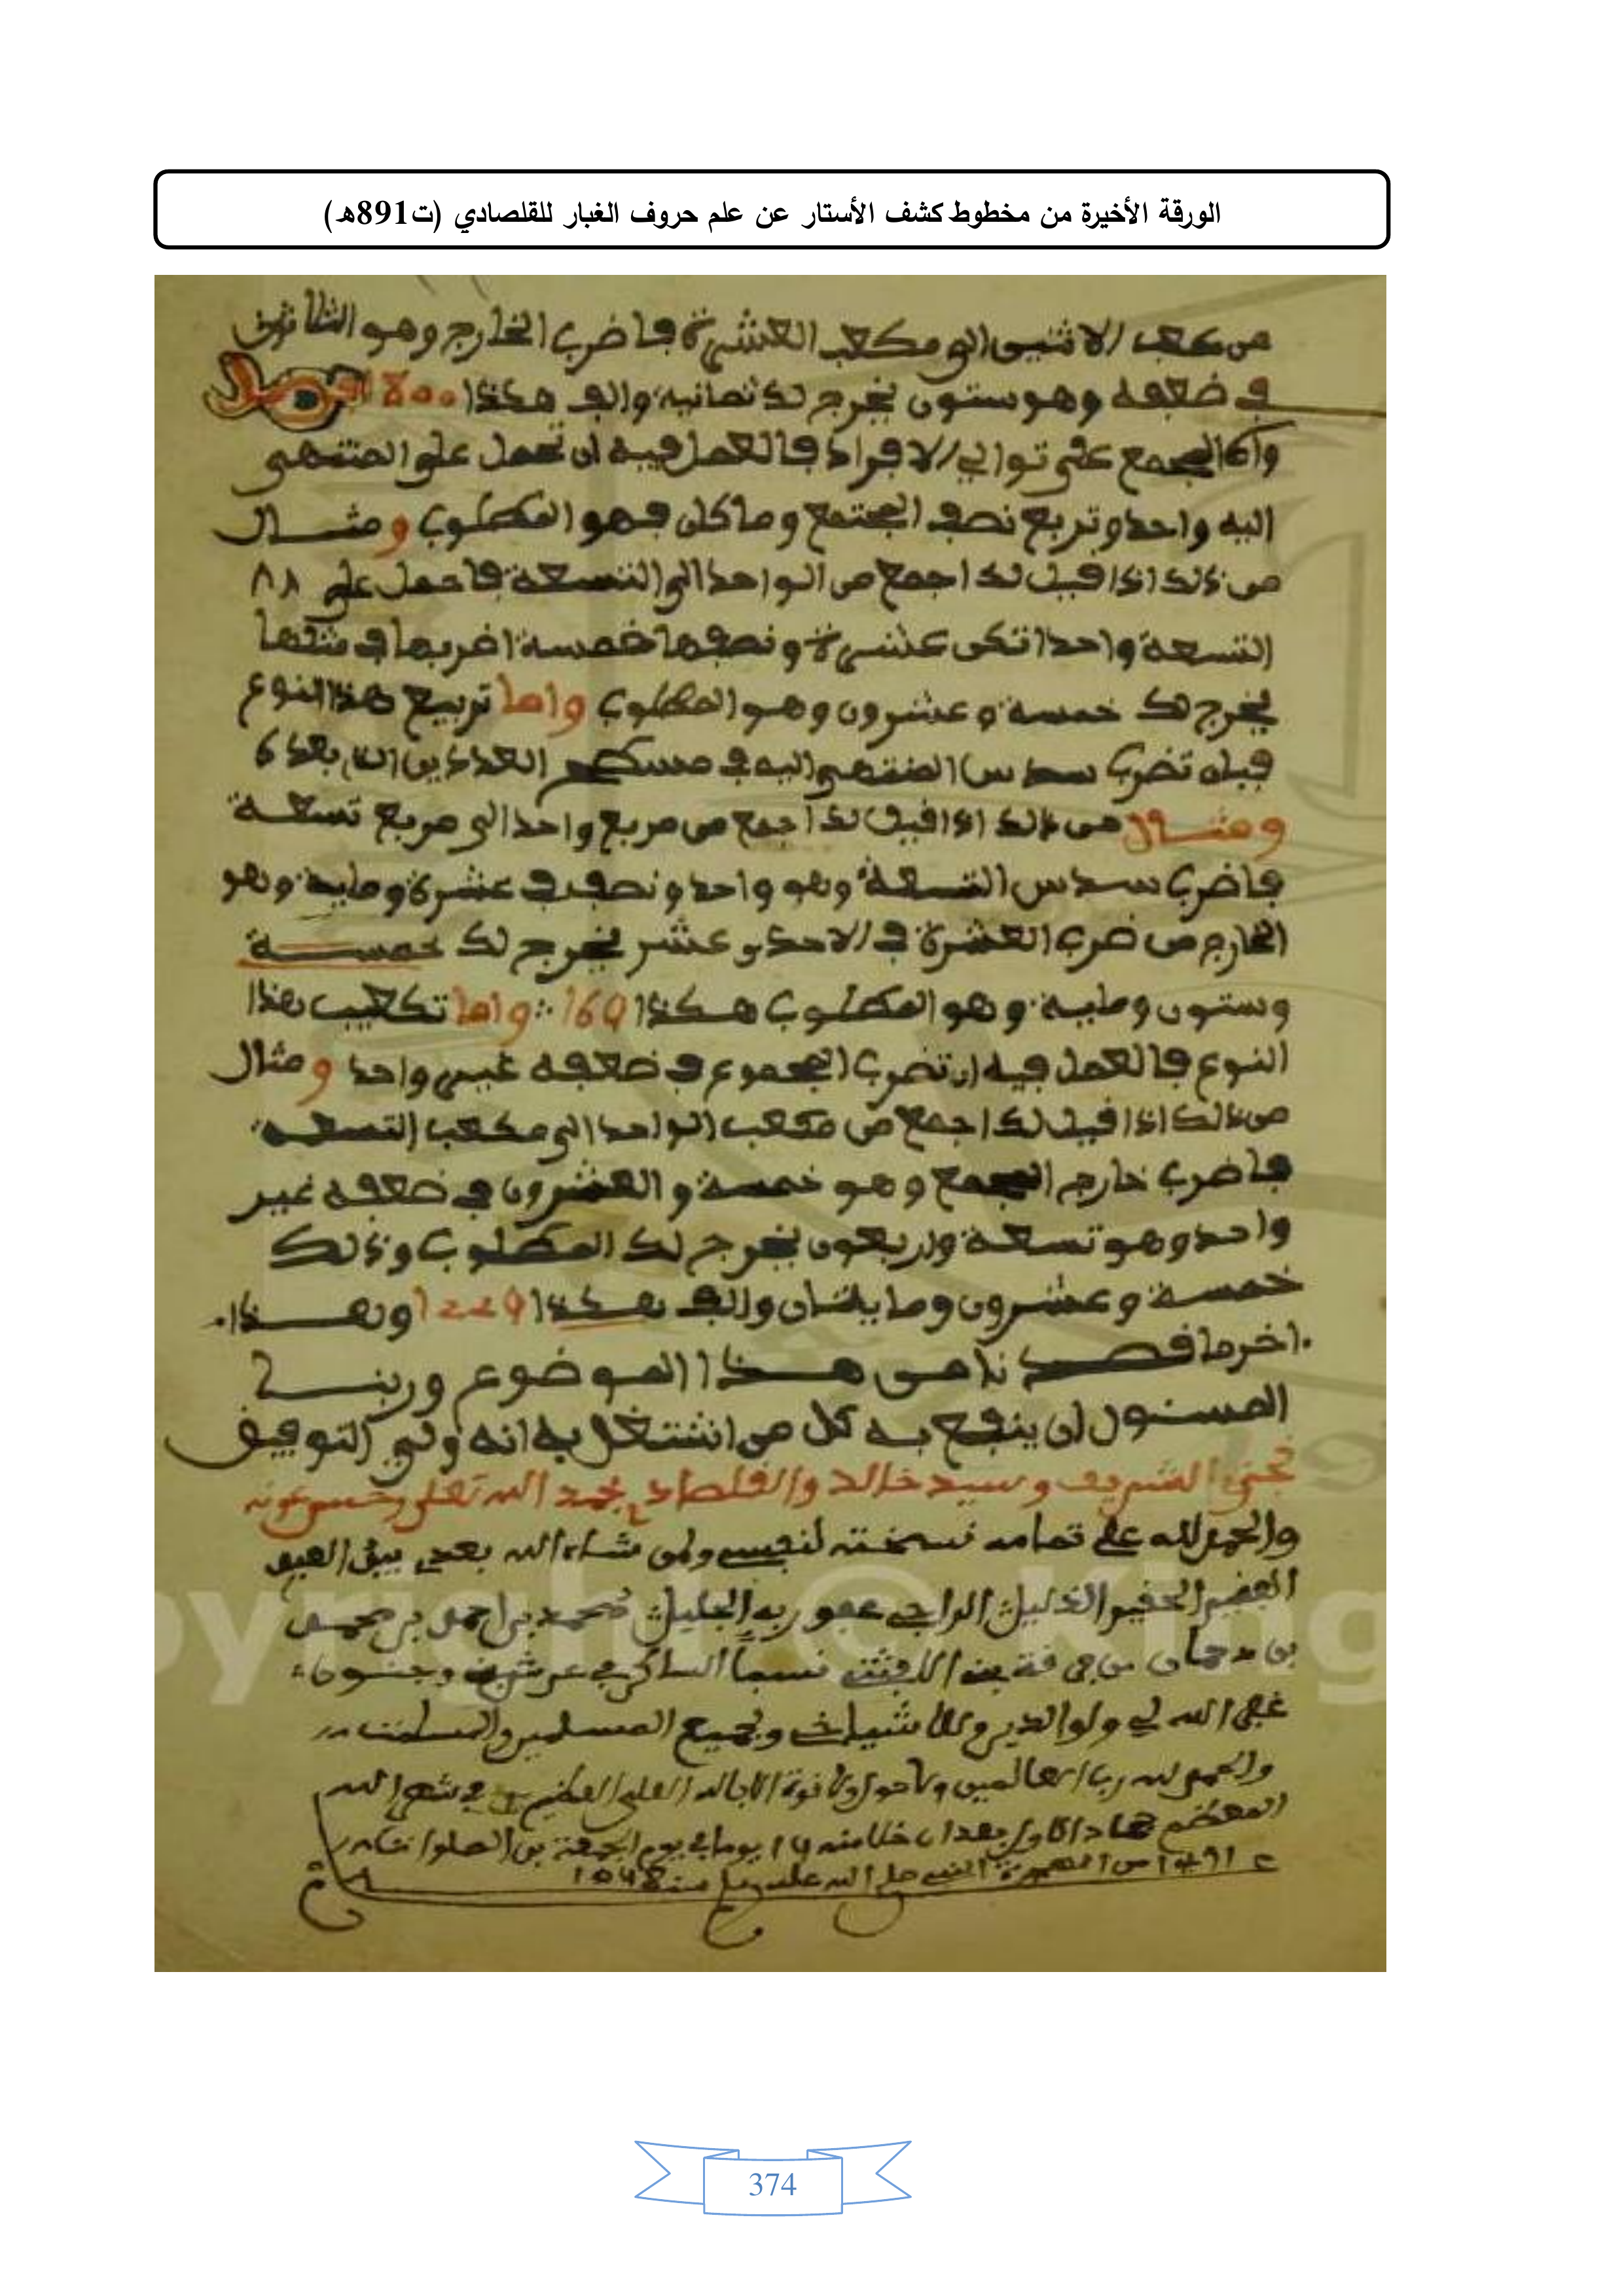 الورقة الأخيرة من مخطوط كشف الأستار عن علم حروف الغبار للقلصادي (ت891هـ)
من مكعب الاثنين الى مكعب العشرة فاضرب الخارج وهو الثلاثون
في ضعفه وهو ستون يخرج لك ثمانية والف هكذا 1800
وأما الجمع على توالي الافراد فالعمل فيه ان تحمل على المنتهى
اليه واحد وتربع نصف المجتمع وما كان فهو المطلوب ومثال
من ذلك اذا قيل لك اجمع من الواحد الى التسعة فاحمل على
التسعة واحدا تكن عشرة ونصفها خمسة اضربها في مثلها
يخرج لك خمسة وعشرون وهو المطلوب واما تربيع هذا النوع
فبان تضرب سدس المنتهى اليه في مسطح العددين بعده
ومثال من ذلك اذا قيل لك اجمع من مربع واحد الى مربع تسعة
فاضرب سدس التسعة وهو واحد ونصف في عشرة وماية وهو
الخارج من ضرب العشرة في الاحد عشر يخرج لك خمسة
وستون وماية وهو المطلوب هكذا واما تكعيب هذا
النوع فالعمل فيه ان تضرب المجموع في ضعفه غير واحد ومثال
من ذلك اذا قيل لك اجمع من مكعب الواحد الى مكعب التسعة
فاضرب خارج الجمع وهو خمسة والعشرون في ضعفه غير
واحد وهو تسعة واربعون يخرج لك المطلوب وذلك
خمسة وعشرون ومايتان والف هكذا وهذا
اخر ما قصدنا من هذا الموضوع وربنا
المسئول ان ينفع به كل من اشتغل به انه ولي التوفيق
الشريف وسيد خالد والقلصادي بحمد الله تعلى وحسن عونه
والحمد لله على تمامه نسخته لنفسي ولمن شاء الله بعدي
الحقير الذليل الراجي عفو ربه الجليل محمد بن احمد بن محمد
بن نسبا الساكن
غفر الله لي ولوالدي ولاشياخي ولجميع المسلمين والمسلمات
والحمد لله رب العالمين ولا حول ولا قوة الا بالله العلي العظيم في شهر الله
المعظم يوما في يوم الجمعة بين الصلوات
من الهجرة النبي صلى الله عليه وسلم سنة 1048
374